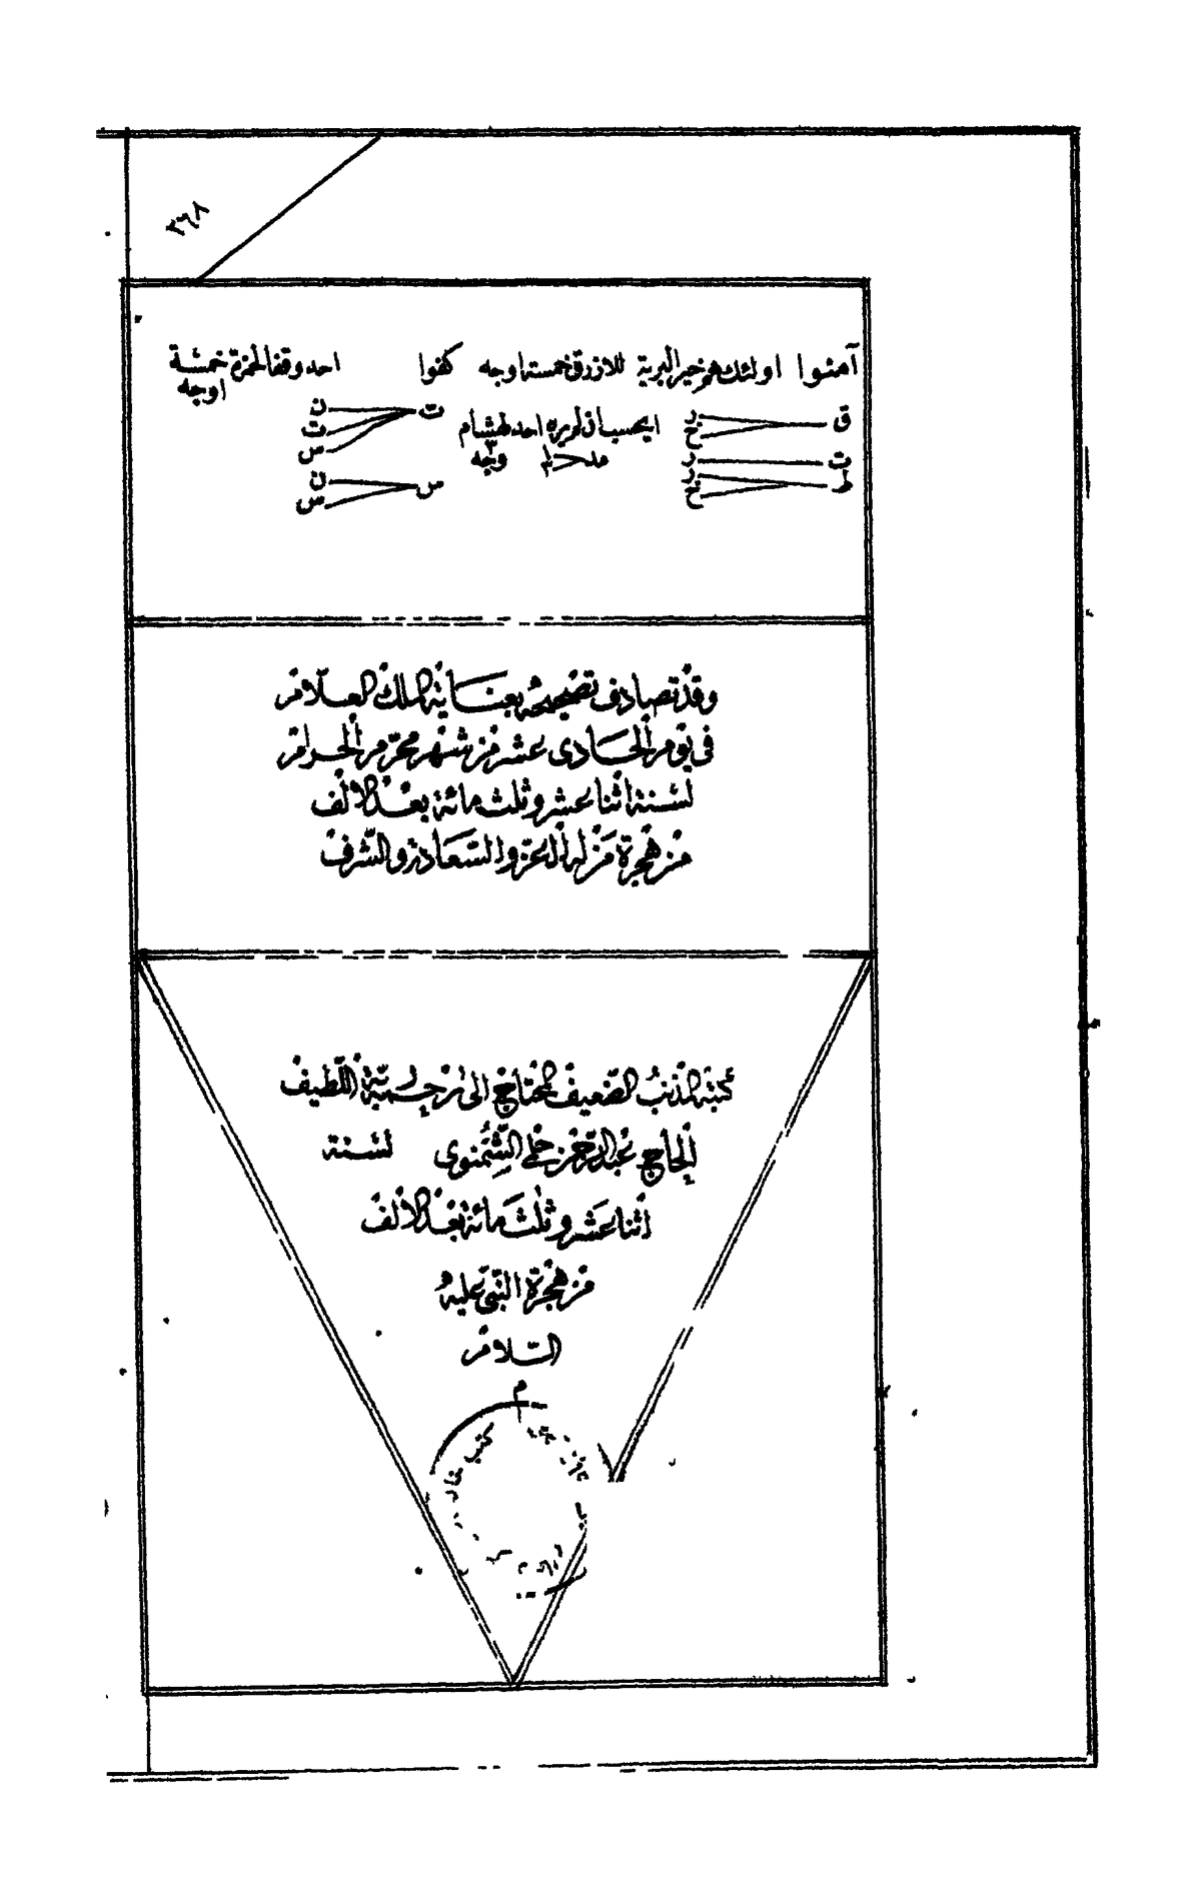 ٣٦٨
آمنوا اولئك هم خير البرية للازرق خمسة اوجه كفوا احد وقفا لحمزة خمسة
اوجه
ق ر ج
ت ر
ط ر ج
ايحسب ان لم يره احد لهشام
وجه
ت ن ت س
س ن س
وقد تصادف تصحيحه بعناية الملك العلام
فى يوم الحادى عشر من شهر محرم الحرام
لسنة اثنا عشر وثلث مائة بعد الالف
من هجرة من له العز والسعادة والشرف
كتبه المذنب الضعيف المحتاج الى رحمة اللطيف
الحاج عبد الرحمن حلمى الشمنوى لسنة
اثنا عشر وثلث مائة بعد الالف
من هجرة النبى عليه
السلام
م